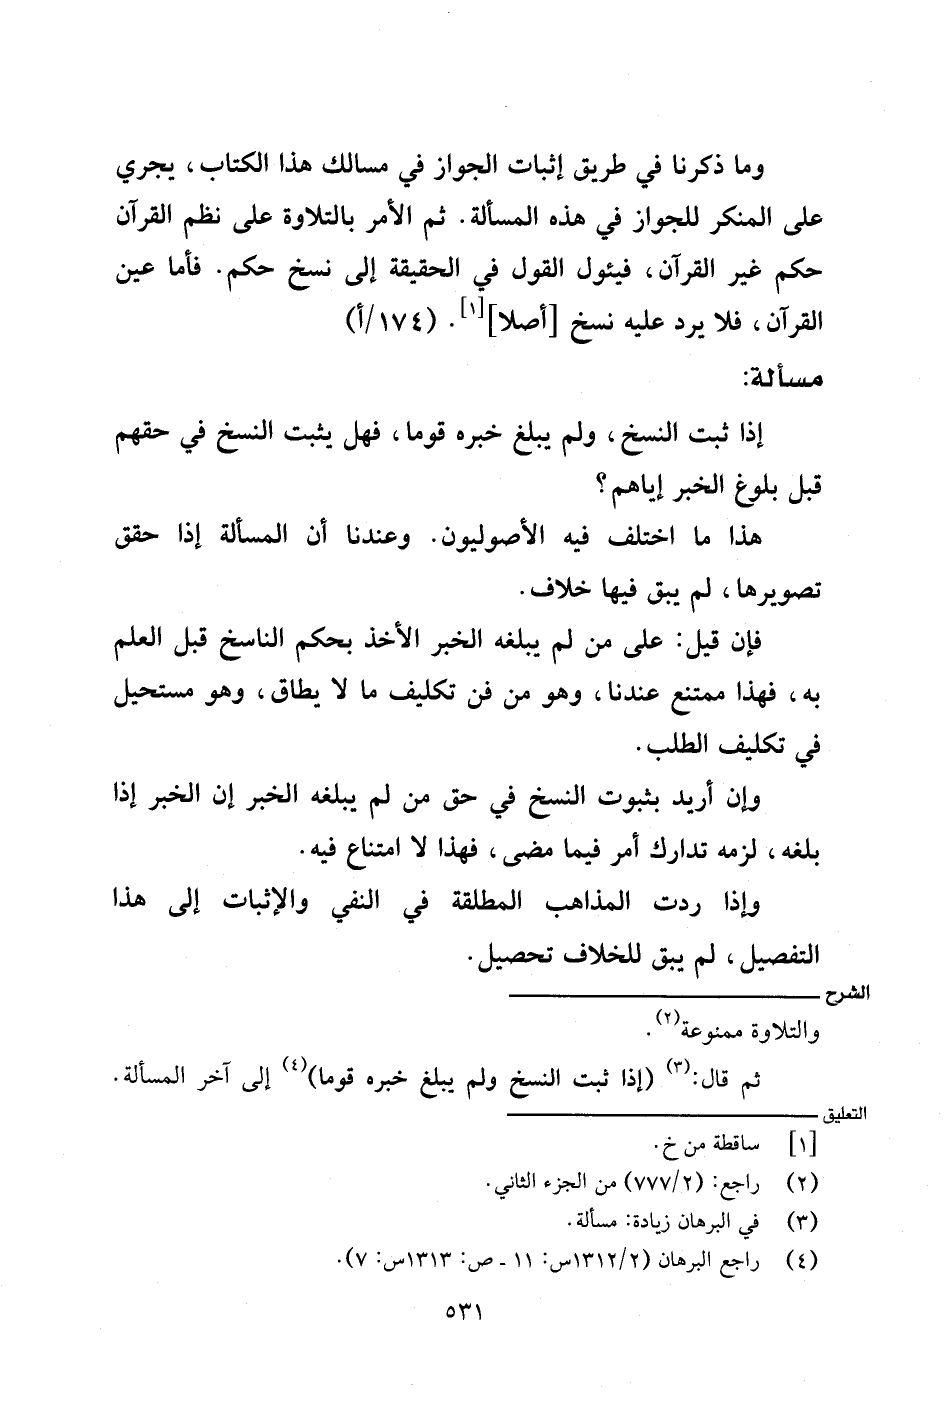 وما ذكرنا في طريق إثبات الجواز في مسالك هذا الكتاب، يجري
على المنكر للجواز في هذه المسألة. ثم الأمر بالتلاوة على نظم القرآن
حكم غير القرآن، فيئول القول في الحقيقة إلى نسخ حكم. فأما عين
القرآن، فلا يرد عليه نسخ [أصلا][١]. (١٧٤/أ)
مسألة:
إذا ثبت النسخ، ولم يبلغ خبره قوما، فهل يثبت النسخ في حقهم
قبل بلوغ الخبر إياهم؟
هذا ما اختلف فيه الأصوليون. وعندنا أن المسألة إذا حقق
تصويرها، لم يبق فيها خلاف.
فإن قيل: على من لم يبلغه الخبر الأخذ بحكم الناسخ قبل العلم
به، فهذا ممتنع عندنا، وهو من فن تكليف ما لا يطاق، وهو مستحيل
في تكليف الطلب.
وإن أريد بثبوت النسخ في حق من لم يبلغه الخبر إن الخبر إذا
بلغه، لزمه تدارك أمر فيما مضى، فهذا لا امتناع فيه.
وإذا ردت المذاهب المطلقة في النفي والإثبات إلى هذا
التفصيل، لم يبق للخلاف تحصيل.
الشرح
والتلاوة ممنوعة(٢).
ثم قال:(٣) (إذا ثبت النسخ ولم يبلغ خبره قوما)(٤) إلى آخر المسألة.
التعليق
[١] ساقطة من خ.
(٢) راجع: (٧٧٧/٢) من الجزء الثاني.
(٣) في البرهان زيادة: مسألة.
(٤) راجع البرهان (١٣١٢/٢س: ١١ ـ ص: ١٣١٣س: ٧).
٥٣١